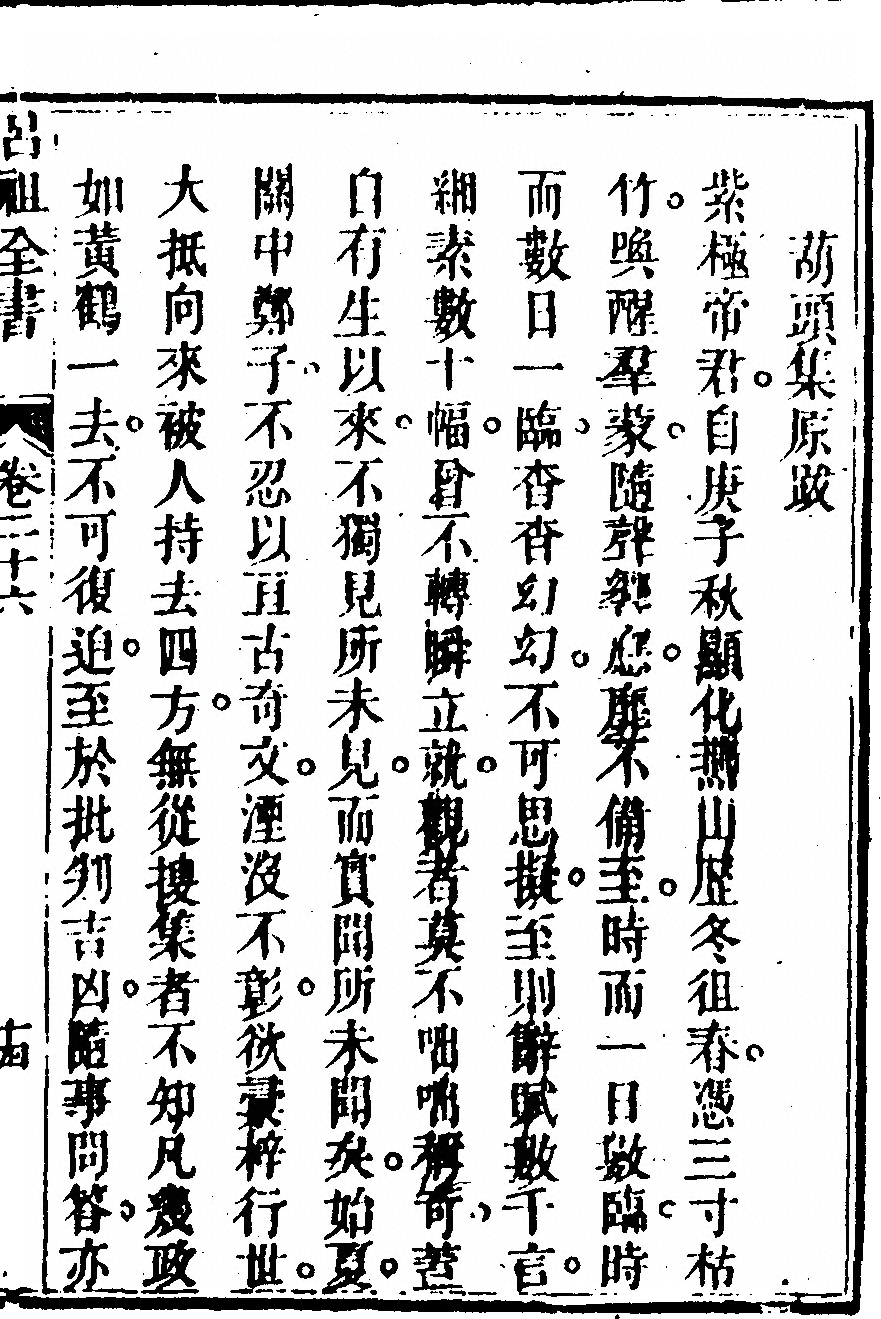 葫頭集原跋
紫極帝君。自庚子秋顯化燕山歷冬徂春。憑三寸枯
竹。喚醒羣蒙。隨聲響應。靡不備至。時而一日數臨。時
而數日一臨。杳杳幻幻。不可思擬。至則辭賦數千言。
緗素數十幅。曾不轉瞬立就。觀者莫不咄咄稱奇。蓋
自有生以來。不獨見所未見。而實聞所未聞矣。始夏。
關中鄭子。不忍以亘古奇文。湮沒不彰。欲彚梓行世。
大抵向來被人持去四方。無從搜集者不知凡幾政
如黃鶴一去。不可復追。至於批判吉凶。隨事問答。亦
呂祖全書 卷二十六 十四